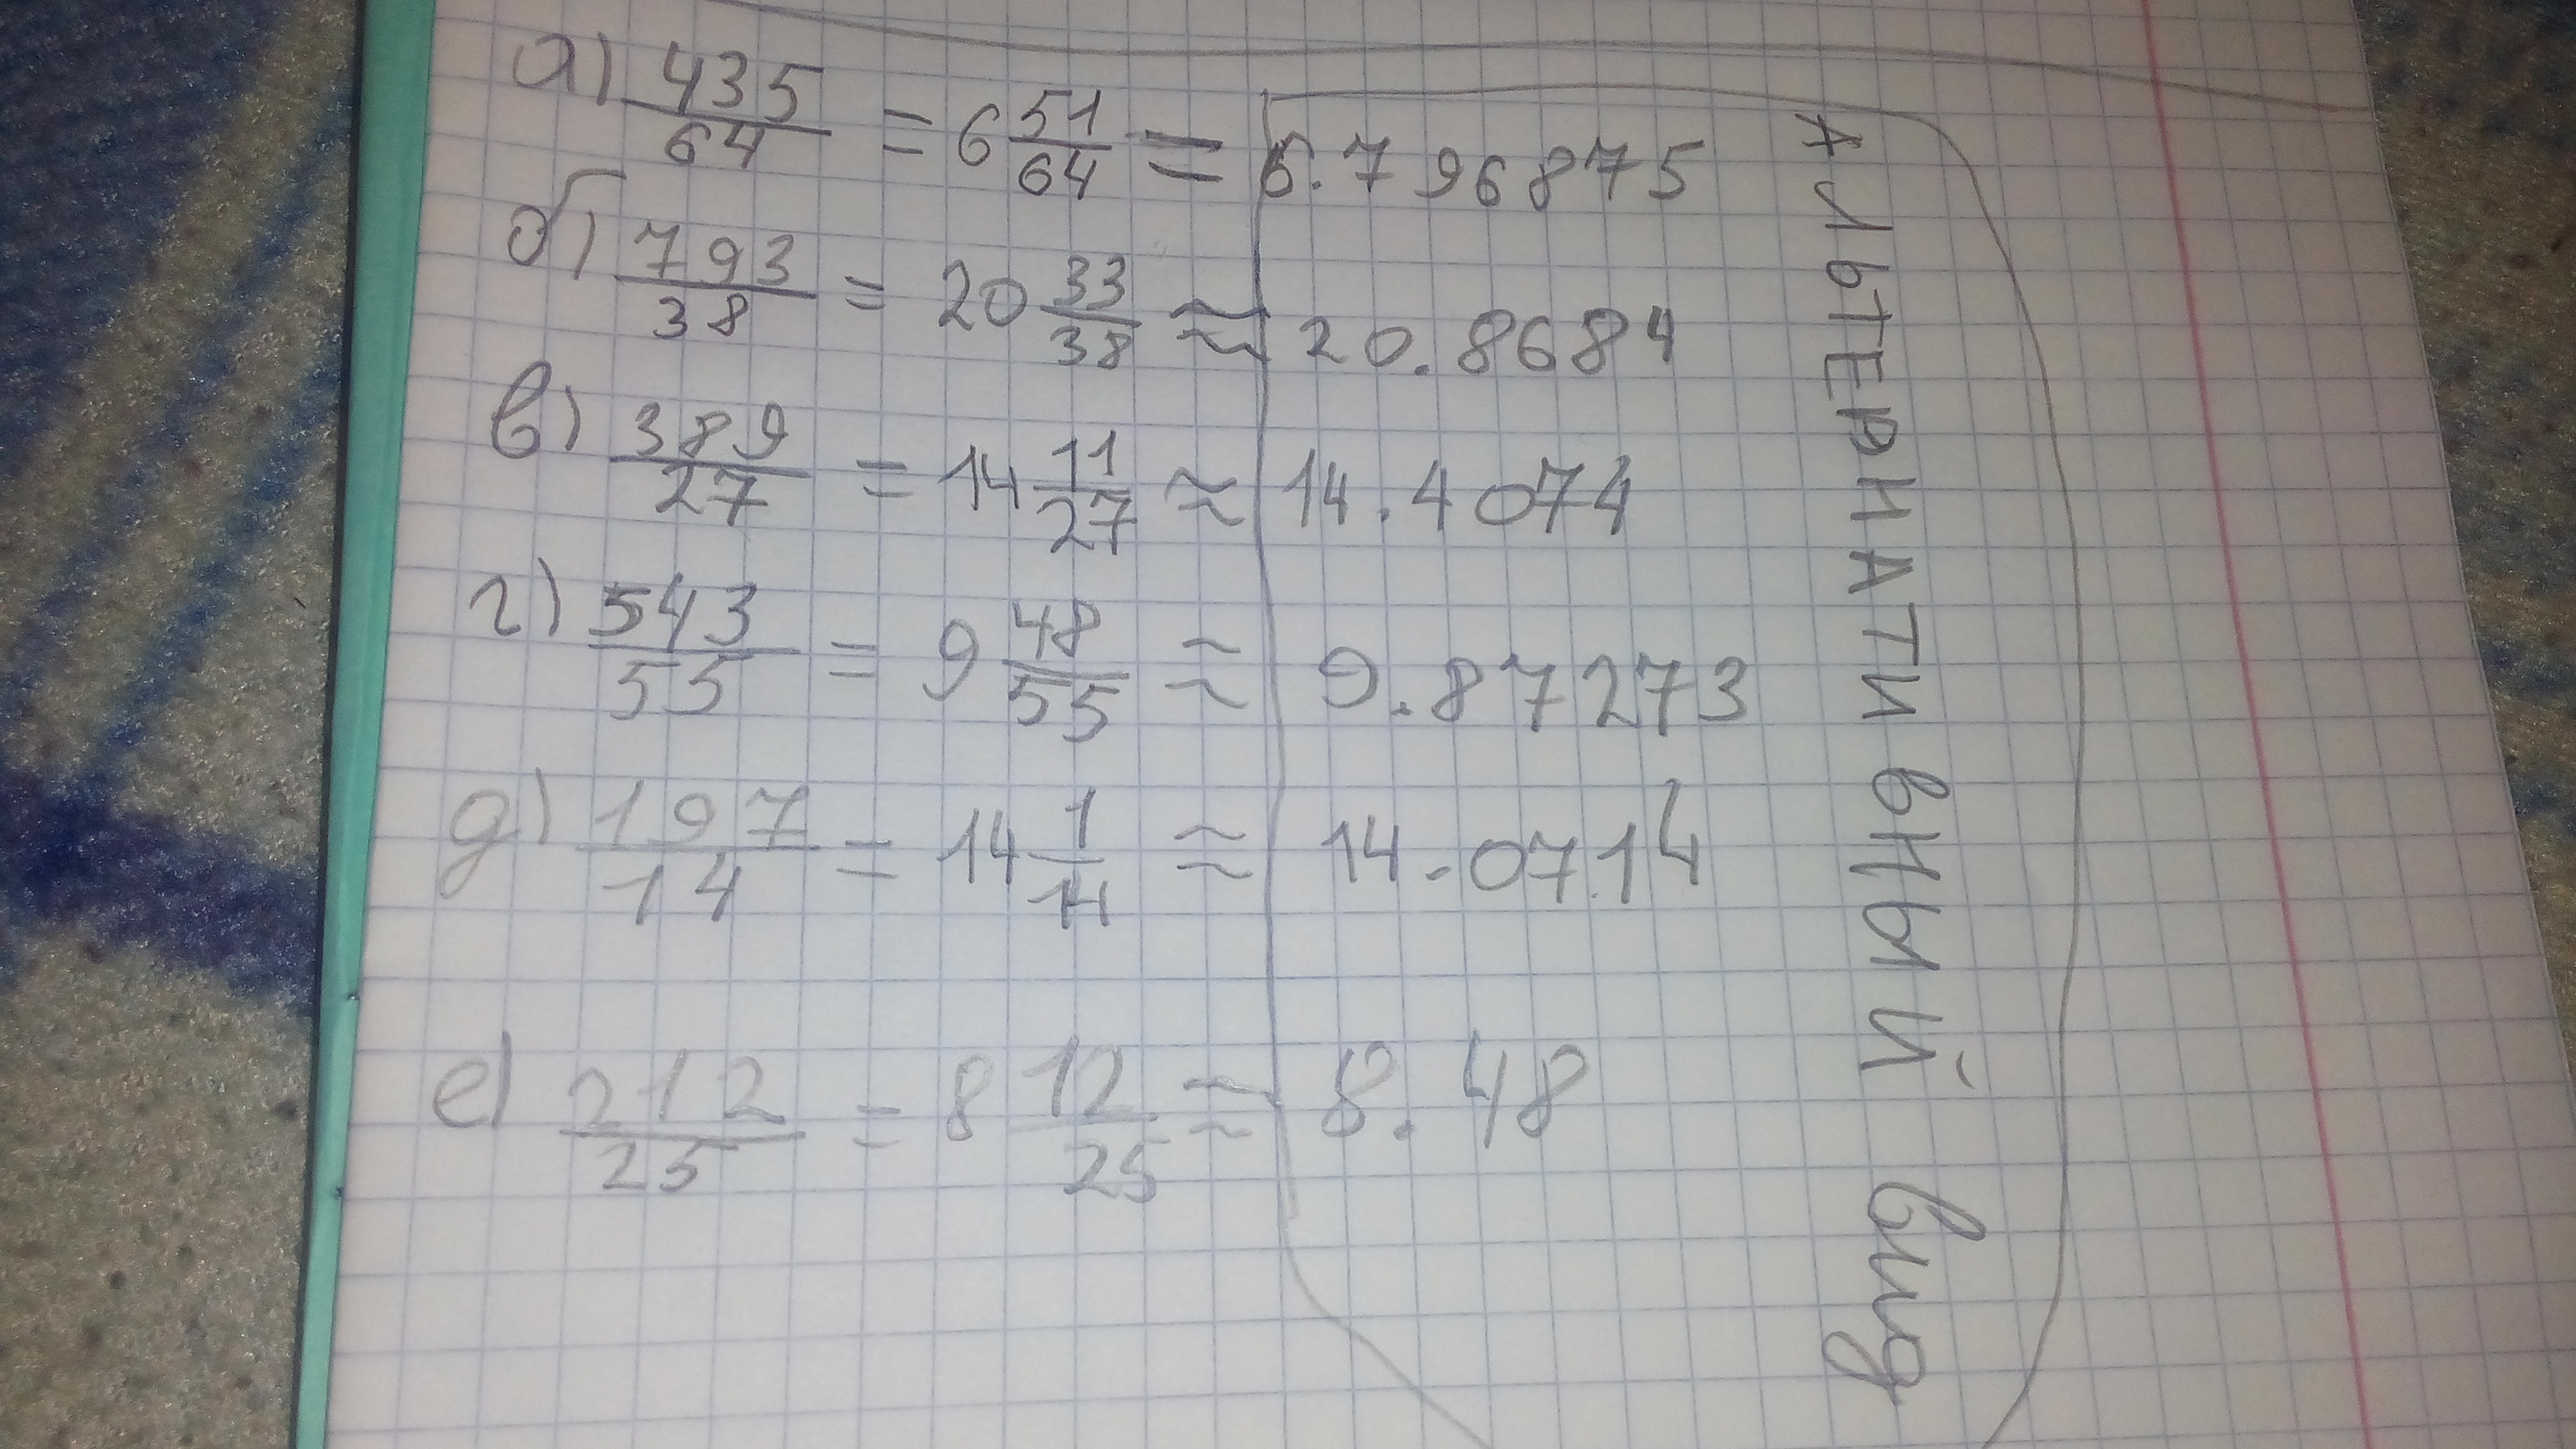 а) 435/64 = 6 51/64 = 6.796875
б) 793/38 = 20 33/38 ≈ 20.8684
в) 389/27 = 14 11/27 ≈ 14.4074
г) 543/55 = 9 48/55 ≈ 9.87273
д) 197/14 = 14 1/14 ≈ 14.0714
е) 212/25 = 8 12/25 ≈ 8.48
АЛЬТЕРНАТИВНЫЙ вид